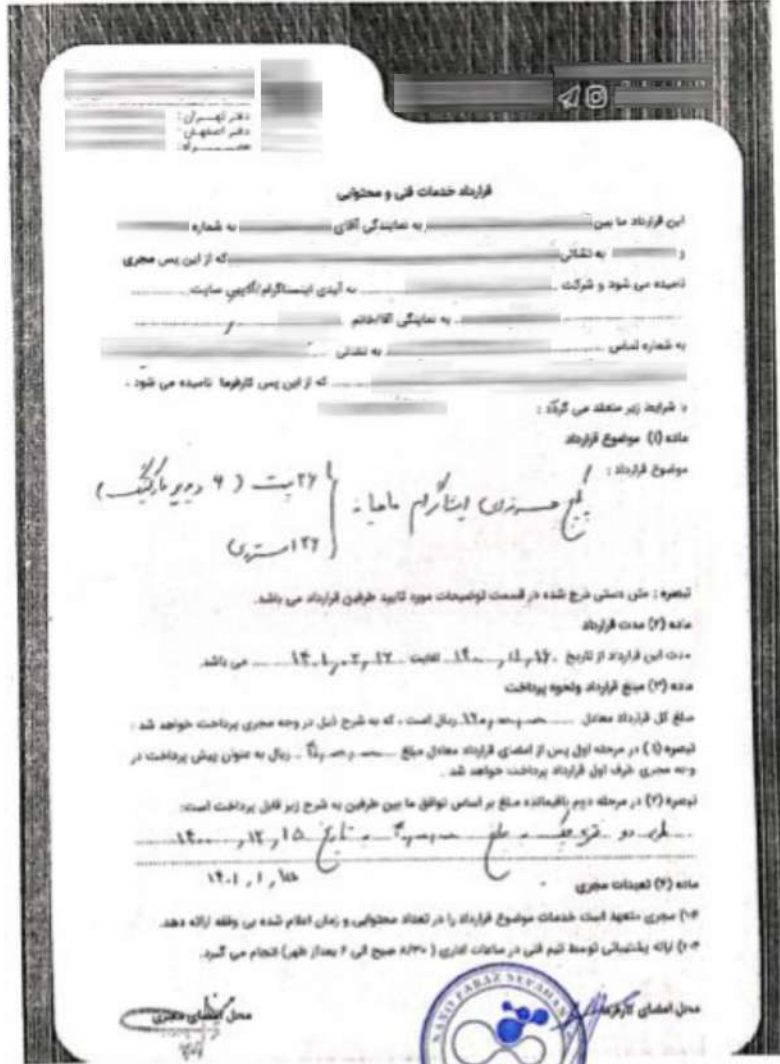 دفتر تهــــران :
دفتر اصفهان :
همـــــــراه :
قرارداد خدمات فنی و محتوایی
این قرارداد ما بین به نمایندگی آقای به شماره
و به نشانی که از این پس مجری
نامیده می شود و شرکت به آیدی اینستاگرام/آدرس سایت
به نمایندگی آقا/خانم
به شماره تماس به نشانی
که از این پس کارفرما نامیده می شود .
با شرایط زیر منعقد می گردد :
ماده (۱) موضوع قرارداد
موضوع قرارداد :
پکیج اینستاگرام ماهیانه
۲۶ پست ( ۶
۲۶ استوری
تبصره : متن دستی درج شده در قسمت توضیحات مورد تایید طرفین قرارداد می باشد.
ماده (۲) مدت قرارداد
مدت این قرارداد از تاریخ ۱۴۰۰,۱۱,۱۶ لغایت ۱۴۰۱,۰۲,۱۲ می باشد.
ماده (۳) مبلغ قرارداد ونحوه پرداخت
مبلغ کل قرارداد معادل ریال است ، که به شرح ذیل در وجه مجری پرداخت خواهد شد :
تبصره (۱) در مرحله اول پس از امضای قرارداد معادل مبلغ ریال به عنوان پیش پرداخت در
وجه مجری طرف اول قرارداد پرداخت خواهد شد .
تبصره (۲) در مرحله دوم باقیمانده مبلغ بر اساس توافق ما بین طرفین به شرح زیر قابل پرداخت است:
طی دو فقره چک به مبلغ به تاریخ ۱۴۰۰,۱۲,۱۵
۱۴۰۱,۱,۱۵
ماده (۴) تعهدات مجری
۴-۱) مجری متعهد است خدمات موضوع قرارداد را در تعداد محتوایی و زمان اعلام شده بی وقفه ارائه دهد.
۴-۲) ارائه پشتیبانی توسط تیم فنی در ساعات اداری ( ۸/۳۰ صبح الی ۶ بعداز ظهر) انجام می گیرد.
محل امضای کارفرما
محل امضای مجری
NANO FARAZ SEPAHAN